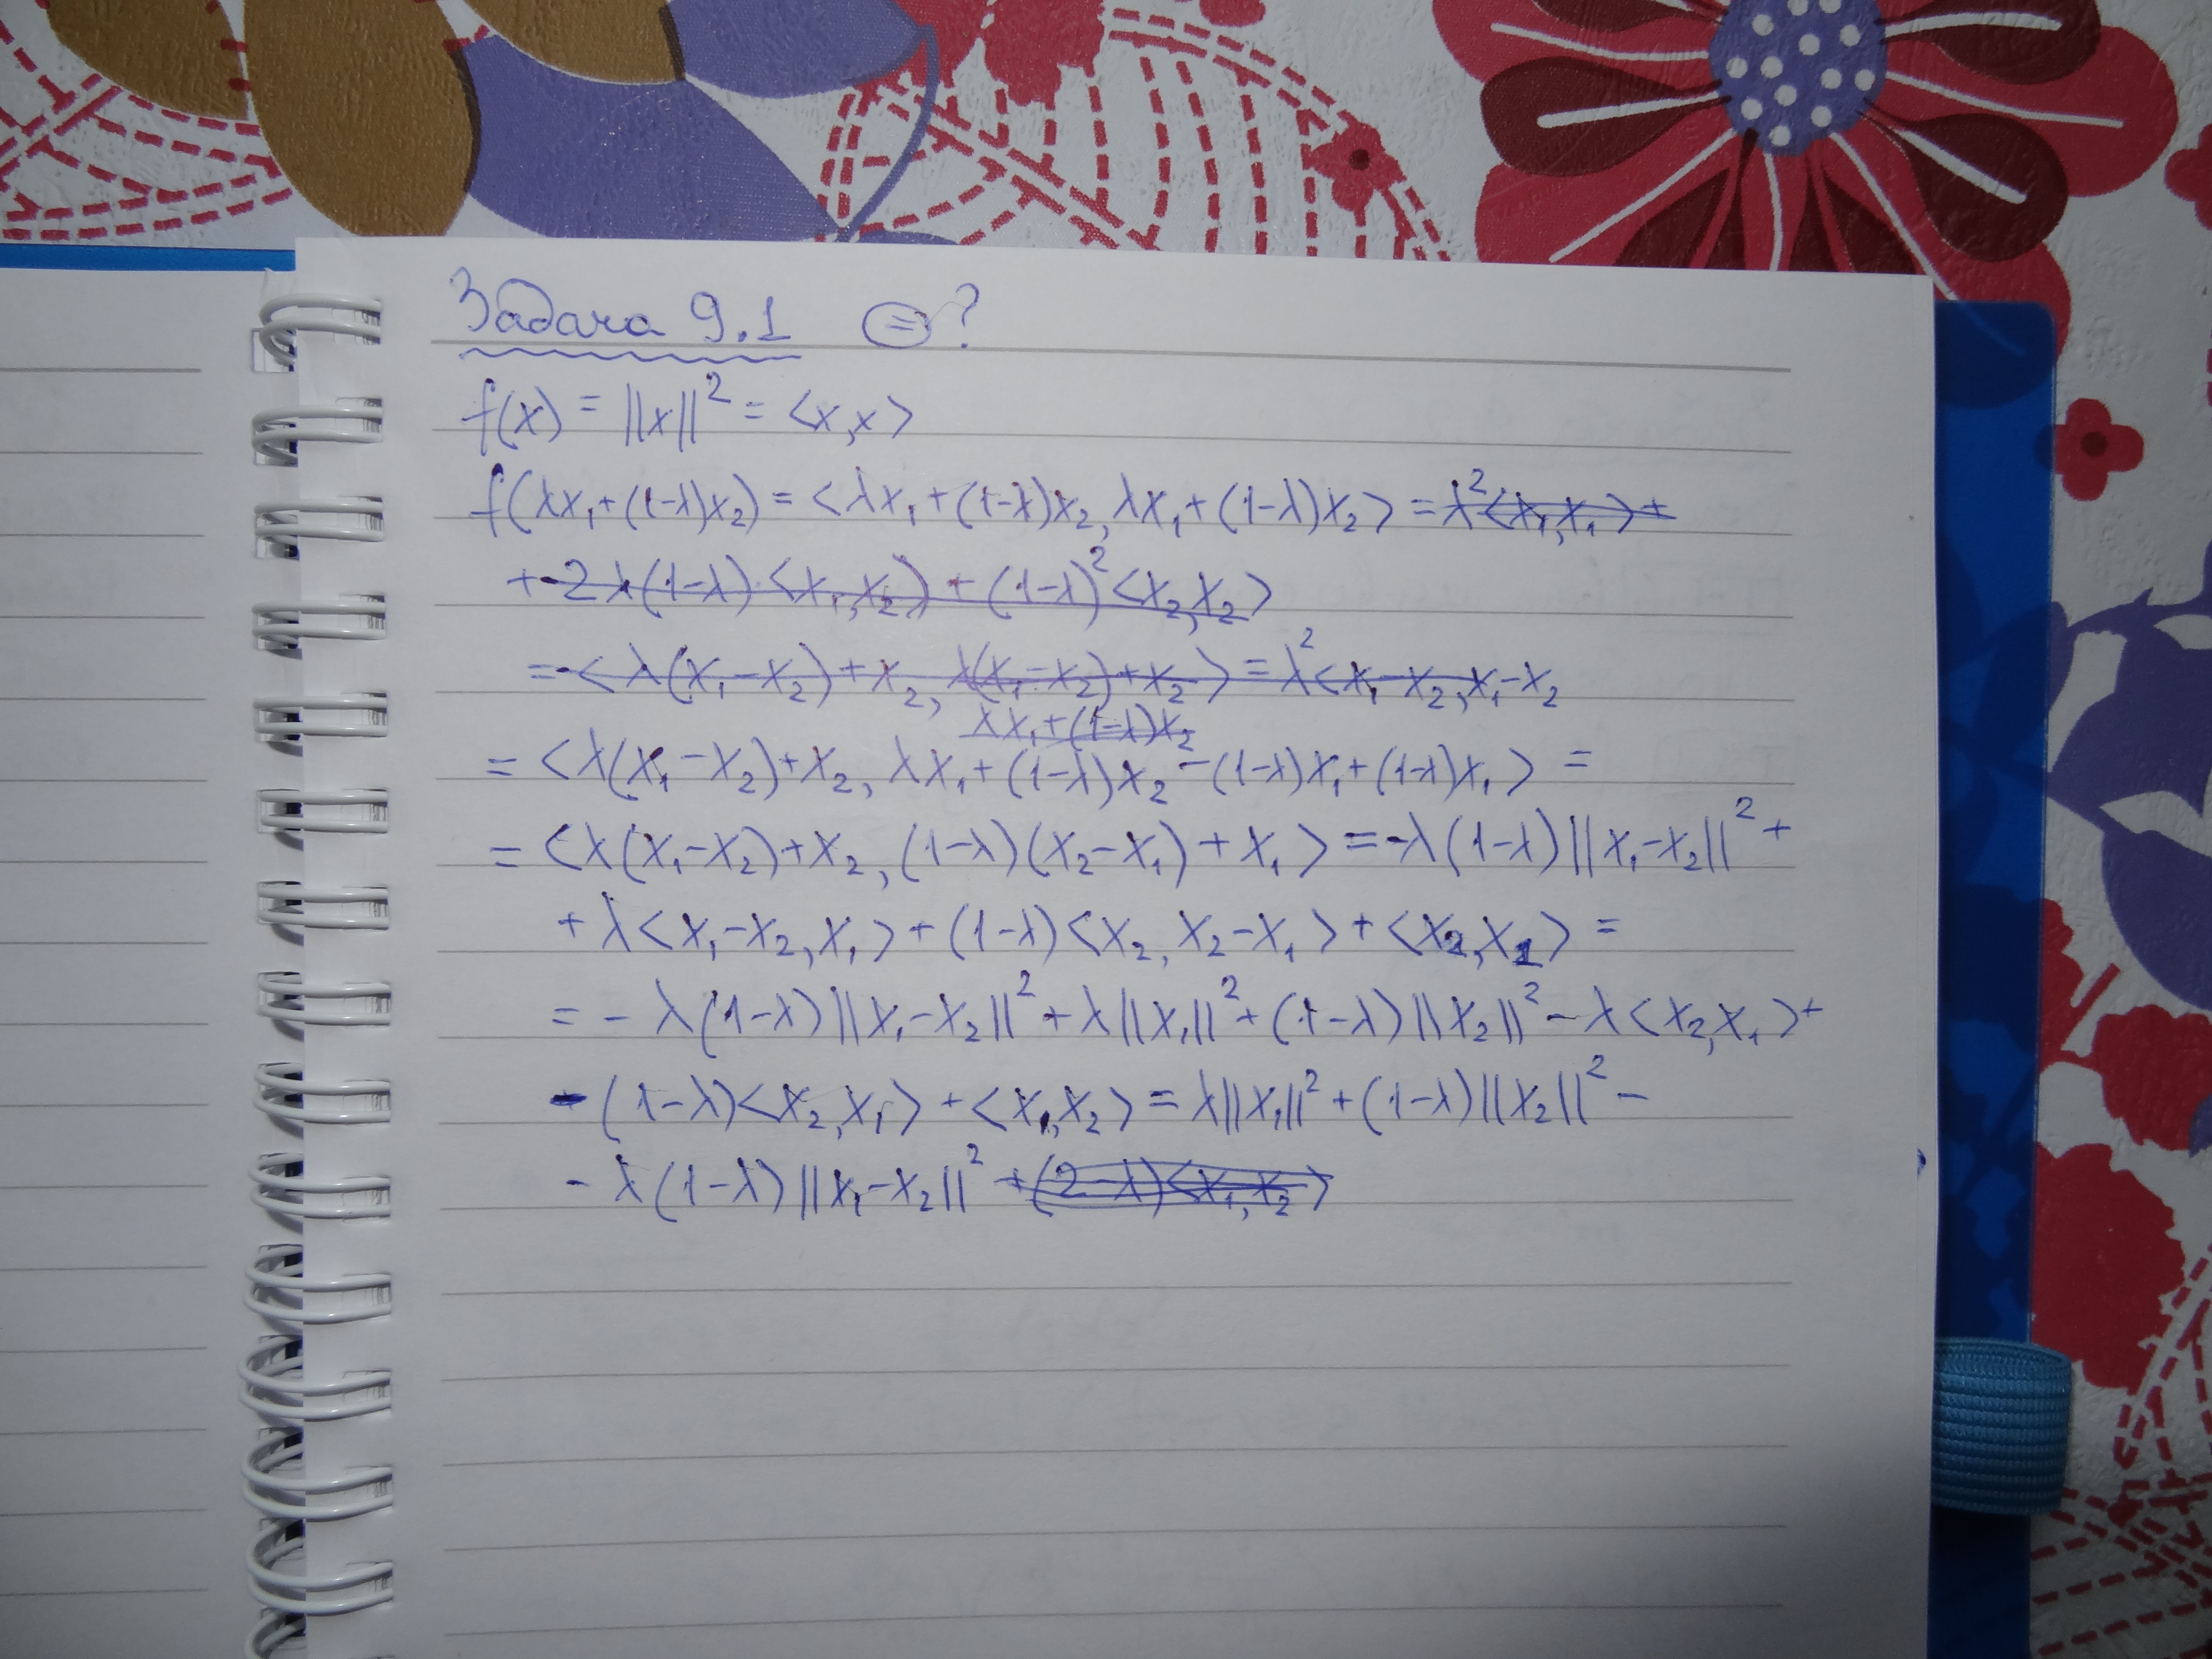 Задача 9.1 (=)?
f(x) = ||x||² = <x,x>
f(λx₁+(1-λ)x₂) = <λx₁+(1-λ)x₂, λx₁+(1-λ)x₂> = λ²<x₁,x₁>+
+ 2λ(1-λ)<x₁,x₂> + (1-λ)²<x₂,x₂>
= <λ(x₁-x₂)+x₂, λ(x₁-x₂)+x₂> = λ²<x₁-x₂, x₁-x₂
λx₁+(1-λ)x₂
= <λ(x₁-x₂)+x₂, λx₁+(1-λ)x₂-(1-λ)x₁+(1-λ)x₁> =
= <λ(x₁-x₂)+x₂, (1-λ)(x₂-x₁)+x₁> = -λ(1-λ)||x₁-x₂||²+
+ λ<x₁-x₂,x₁>+(1-λ)<x₂, x₂-x₁>+<x₂,x₁> =
= -λ(1-λ)||x₁-x₂||²+λ||x₁||²+(1-λ)||x₂||²-λ<x₂,x₁>+
-(1-λ)<x₂,x₁>+<x₁,x₂> = λ||x₁||²+(1-λ)||x₂||²-
-λ(1-λ)||x₁-x₂||² +(2-λ)<x₁,x₂>